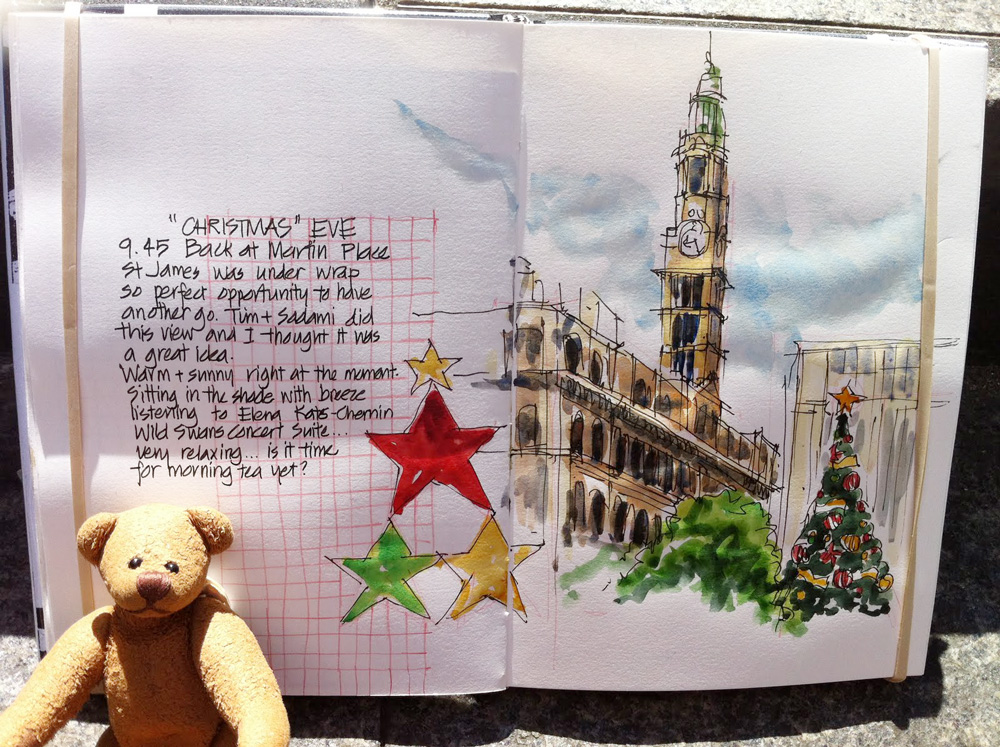 "CHRISTMAS" EVE
9.45 Back at Martin Place
St James was under wrap
so perfect opportunity to have
another go. Tim + Sadami did
this view and I thought it was
a great idea.
Warm + sunny right at the moment.
Sitting in the shade with breeze
listening to Elena Kats-Chernin
Wild Swans Concert Suite...
very relaxing... is it time
for morning tea yet?